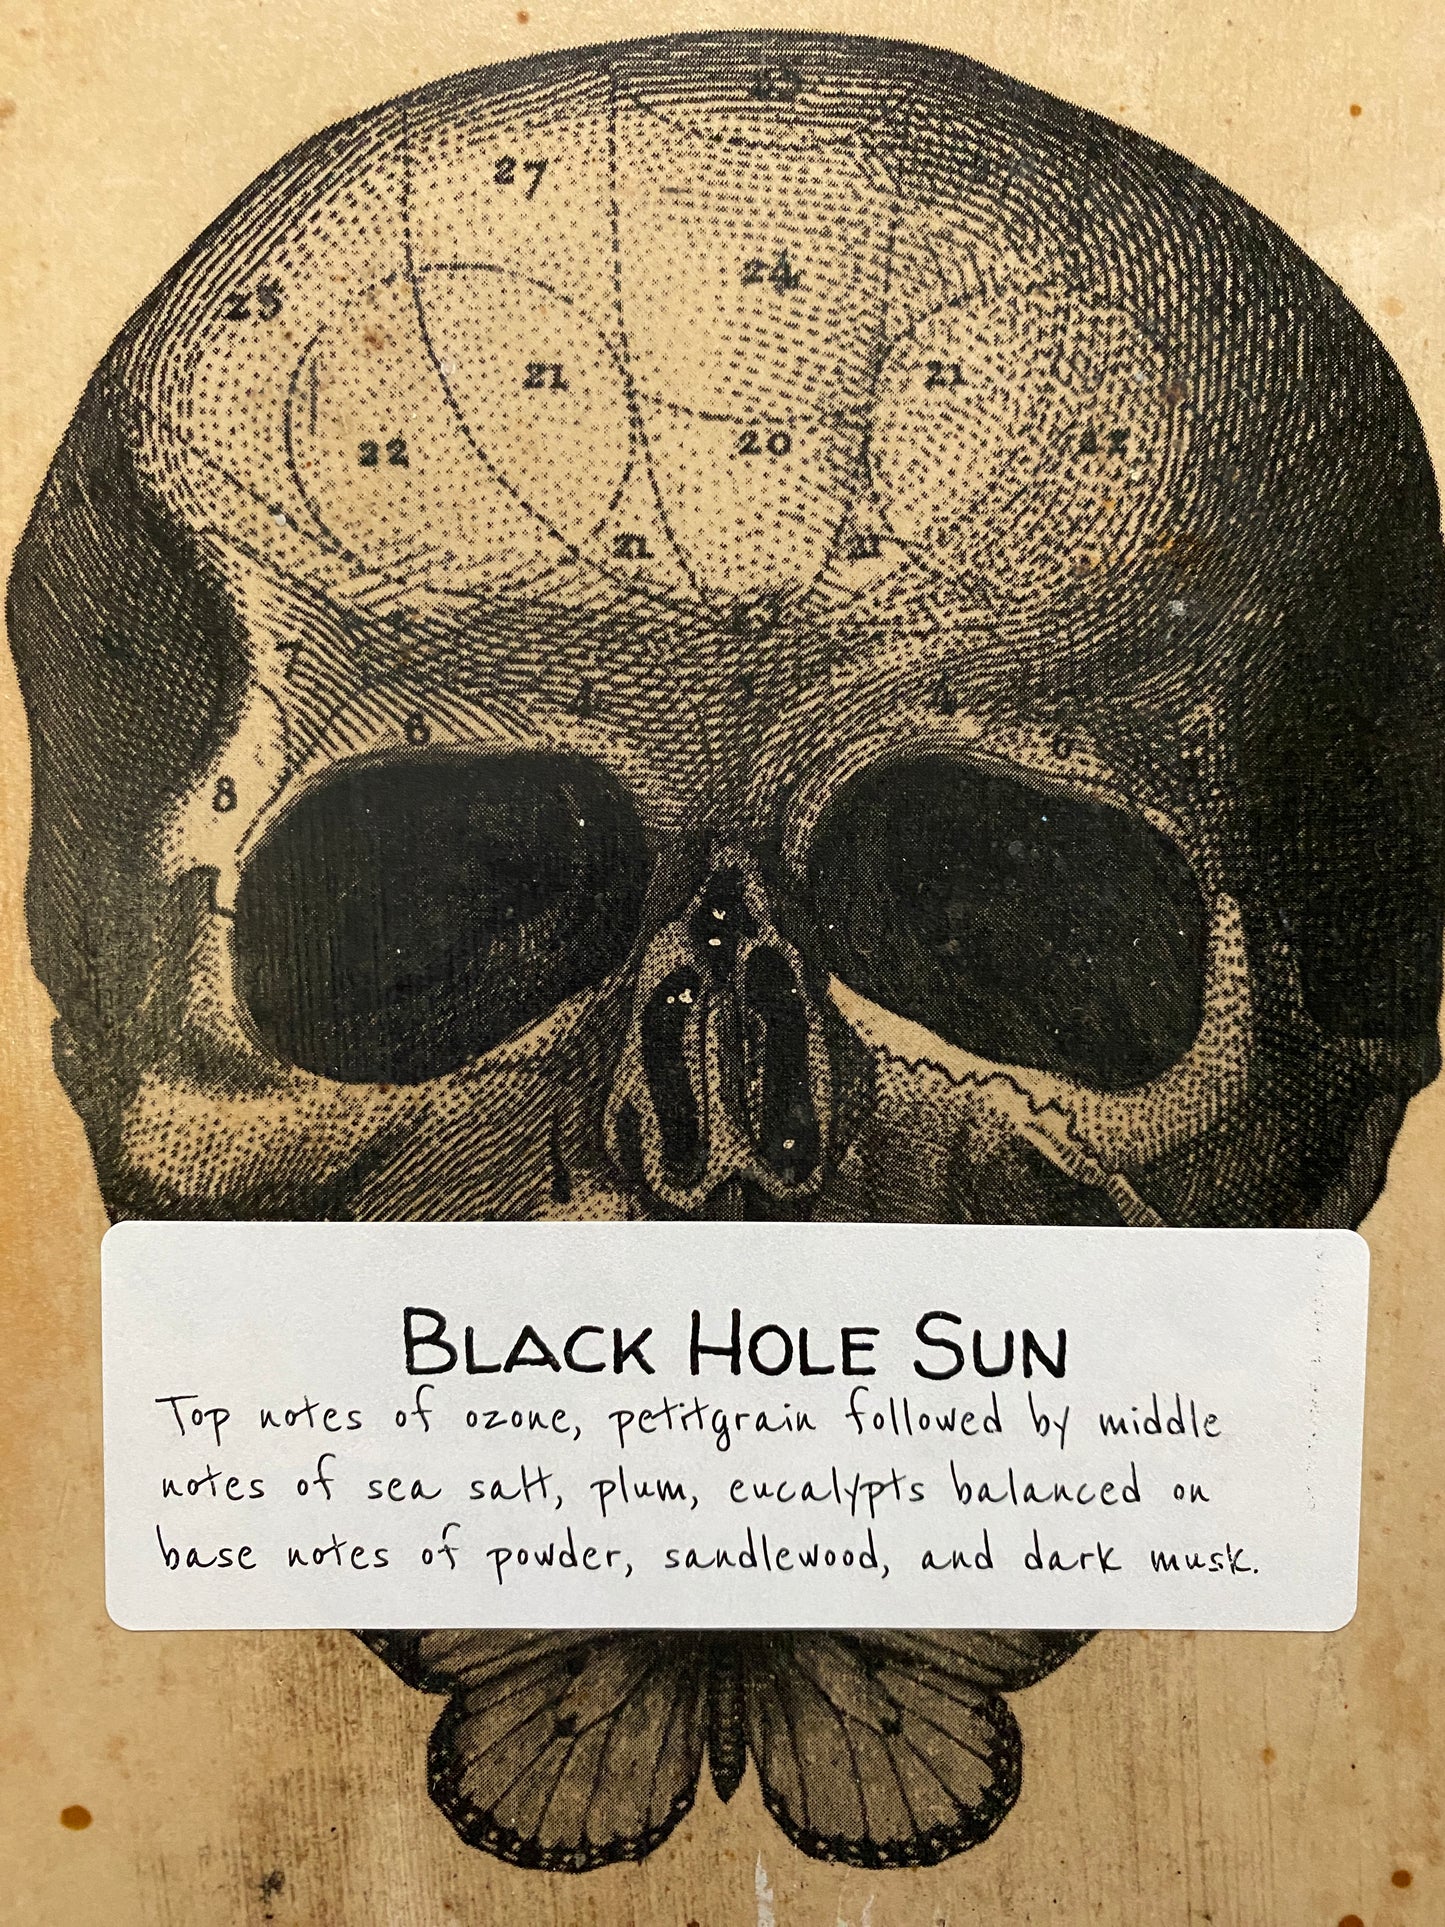 27
24
23
21
21
22
20
6
8
BLACK HOLE SUN
Top notes of ozone, petitgrain followed by middle
notes of sea salt, plum, eucalypts balanced on
base notes of powder, sandlewood, and dark musk.